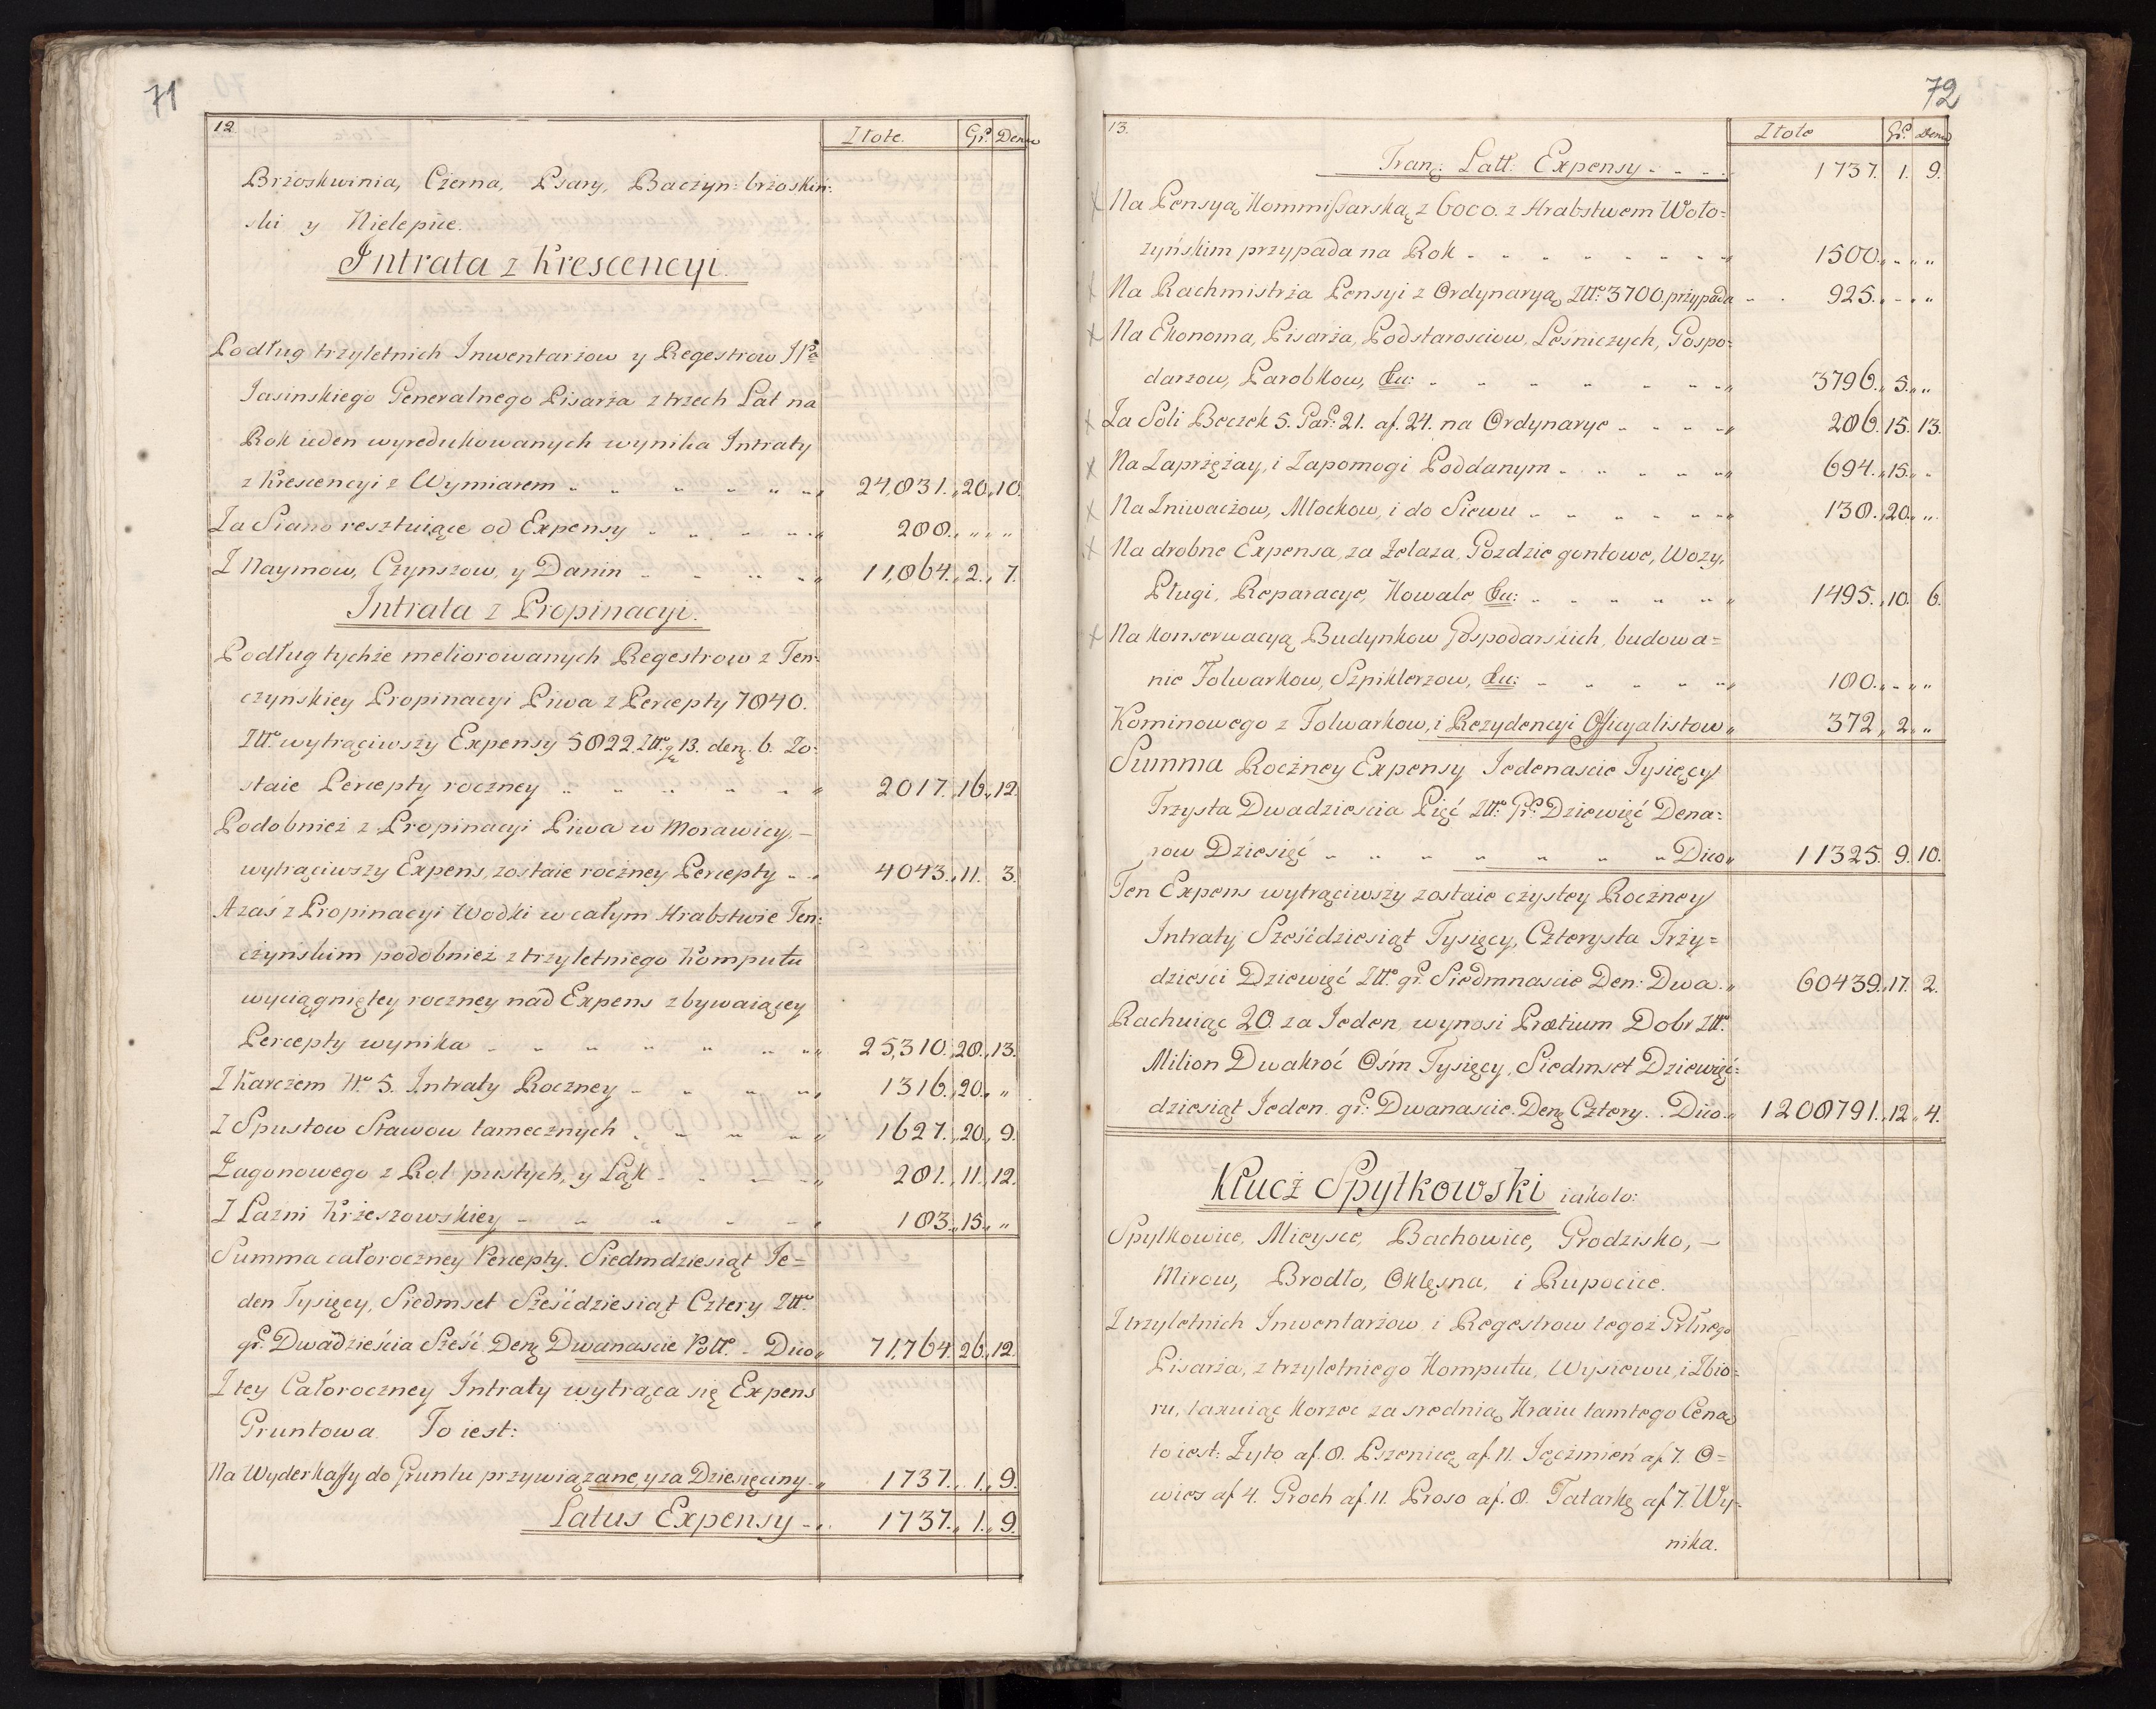 71
12. Złote. Gr. Denar
Brzoskwinia, Czerna, Psary, Baczyn: brzoskiń:
ski y Nielepice.
Intrata z Krescencyi.
Podług trzyletnich Inwentarzow y Regestrow JPa
Jasinskiego Generalnego Pisarza z trzech Lat na
Rok ieden wyredukowanych wynika Intraty
z Krescencyi z Wymiarem 24,831. 20. 10.
Za Siano resztuiące od Expensy 288.
Z Naymow, Czynszow, y Danin 11,864. 2. 7.
Intrata z Propinacyi.
Podług tychże meliorowanych Regestrow z Ten:
czyńskiey Propinacyi Piwa z Percepty 7840.
Złł. wytrąciwszy Expensy 5822. Złł. g 13. den. 6. Zo:
staie Percepty roczney 2017. 16. 12.
Podobnież z Propinacyi Piwa w Morawicy. –
wytrąciwszy Expens, zostaie roczney Percepty 4043. 11. 3.
A zaś z Propinacyi Wodki w całym Hrabstwie Ten:
czyńskim podobnież z trzyletniego Komputu
wyciągniętey roczney nad Expens zbywaiącey
Percepty wynika 25,310. 28. 13.
Z Karczem No. 5. Intraty Roczney 1316. 20.
Z Spustow Stawow tamecznych 1627. 20. 9.
Zagonowego z Rol pustych, y Łąk 281. 11. 12.
Z Łazni Krzeszowskiey 183. 15.
Summa całoroczney Percepty. Siedmdziesiąt Je=
den Tysięcy, Siedmset Sześćdziesiąt Cztery Złł.
gr. Dwadzieścia Sześć Den. Dwanaście Poll. – Dico 71,764. 26. 12.
Z tey Całoroczney Intraty wytrąca się Expens
Gruntowa. To iest:
Na Wyderkaffy do Gruntu przywiązane, y za Dziesięciny 1737. 1. 9.
Latus Expensy 1737. 1. 9.
72
13. Złote Gr. Denar
Tran: Latt: Expensy 1737. 1. 9.
x Na Pensyą Kommissarską z 6000. z Hrabstwem Woło=
żyńskim przypada na Rok 1500.
x Na Rachmistrza Pensyi z Ordynaryą Złł. 3700. przypada 925.
x Na Ekonoma, Pisarza, Podstarosciow, Leśniczych, Gospo=
darzow, Parobkow, &c: 3796. 5.
x Za Soli Beczek 5. Gar. 21. af. 24. na Ordynarye 286. 15. 13.
x Na Zaprzężay, i Zapomogi Poddanym 694. 15.
x Na Zniwaczow, Młockow, i do Siewu 138. 20.
x Na drobne Expensa, za Żelaza, Gozdzie gontowe, Wozy,
Pługi, Reparacye, Kowale &c: 1495. 10. 6.
x Na konserwacyą Budynkow Gospodarskich, budowa=
nie Folwarkow, Szpiklerzow, &c: 180.
Kominowego z Folwarkow, i Rezydencyi Officyalistow 372. 2.
Summa Roczney Expensy Jedenascie Tysięcy
Trzysta Dwadziescia Pięć Złł. Gr. Dziewięć Dena=
row Dziesięć Dico 11325. 9. 10.
Ten Expens wytrąciwszy zostaie czystey Roczney
Intraty Sześćdziesiąt Tysięcy, Czterysta Trzy=
dziesci Dziewięć Złł. gr. Siedmnascie Den: Dwa. 60439. 17. 2.
Rachuiąc 20. za Jeden, wynosi Prætium Dobr Złł.
Milion Dwakroć Ośm Tysięcy, Siedmset Dziewięć=
dziesiąt Jeden. gr: Dwanascie. Den. Cztery. Dico 1208791. 12. 4.
Klucz Spytkowski iakoto:
Spytkowice, Mieysce, Bachowice, Grodzisko, –
Mirow, Brodło, Oklęsna, i Rupocice.
Z trzyletnich Inwentarzow i Regestrow tegoż Grłnego
Pisarza, z trzyletniego Komputu, Wysiewu, i Zbio=
ru, taxuiąc Korzec za srednią Kraiu tamtego Cenę
to iest: Żyto af. 8. Pszenicę af. 11. Jęczmień af. 7. O=
wies af. 4. Groch af. 11. Proso af. 8. Tatarkę af. 7. Wy=
nika.